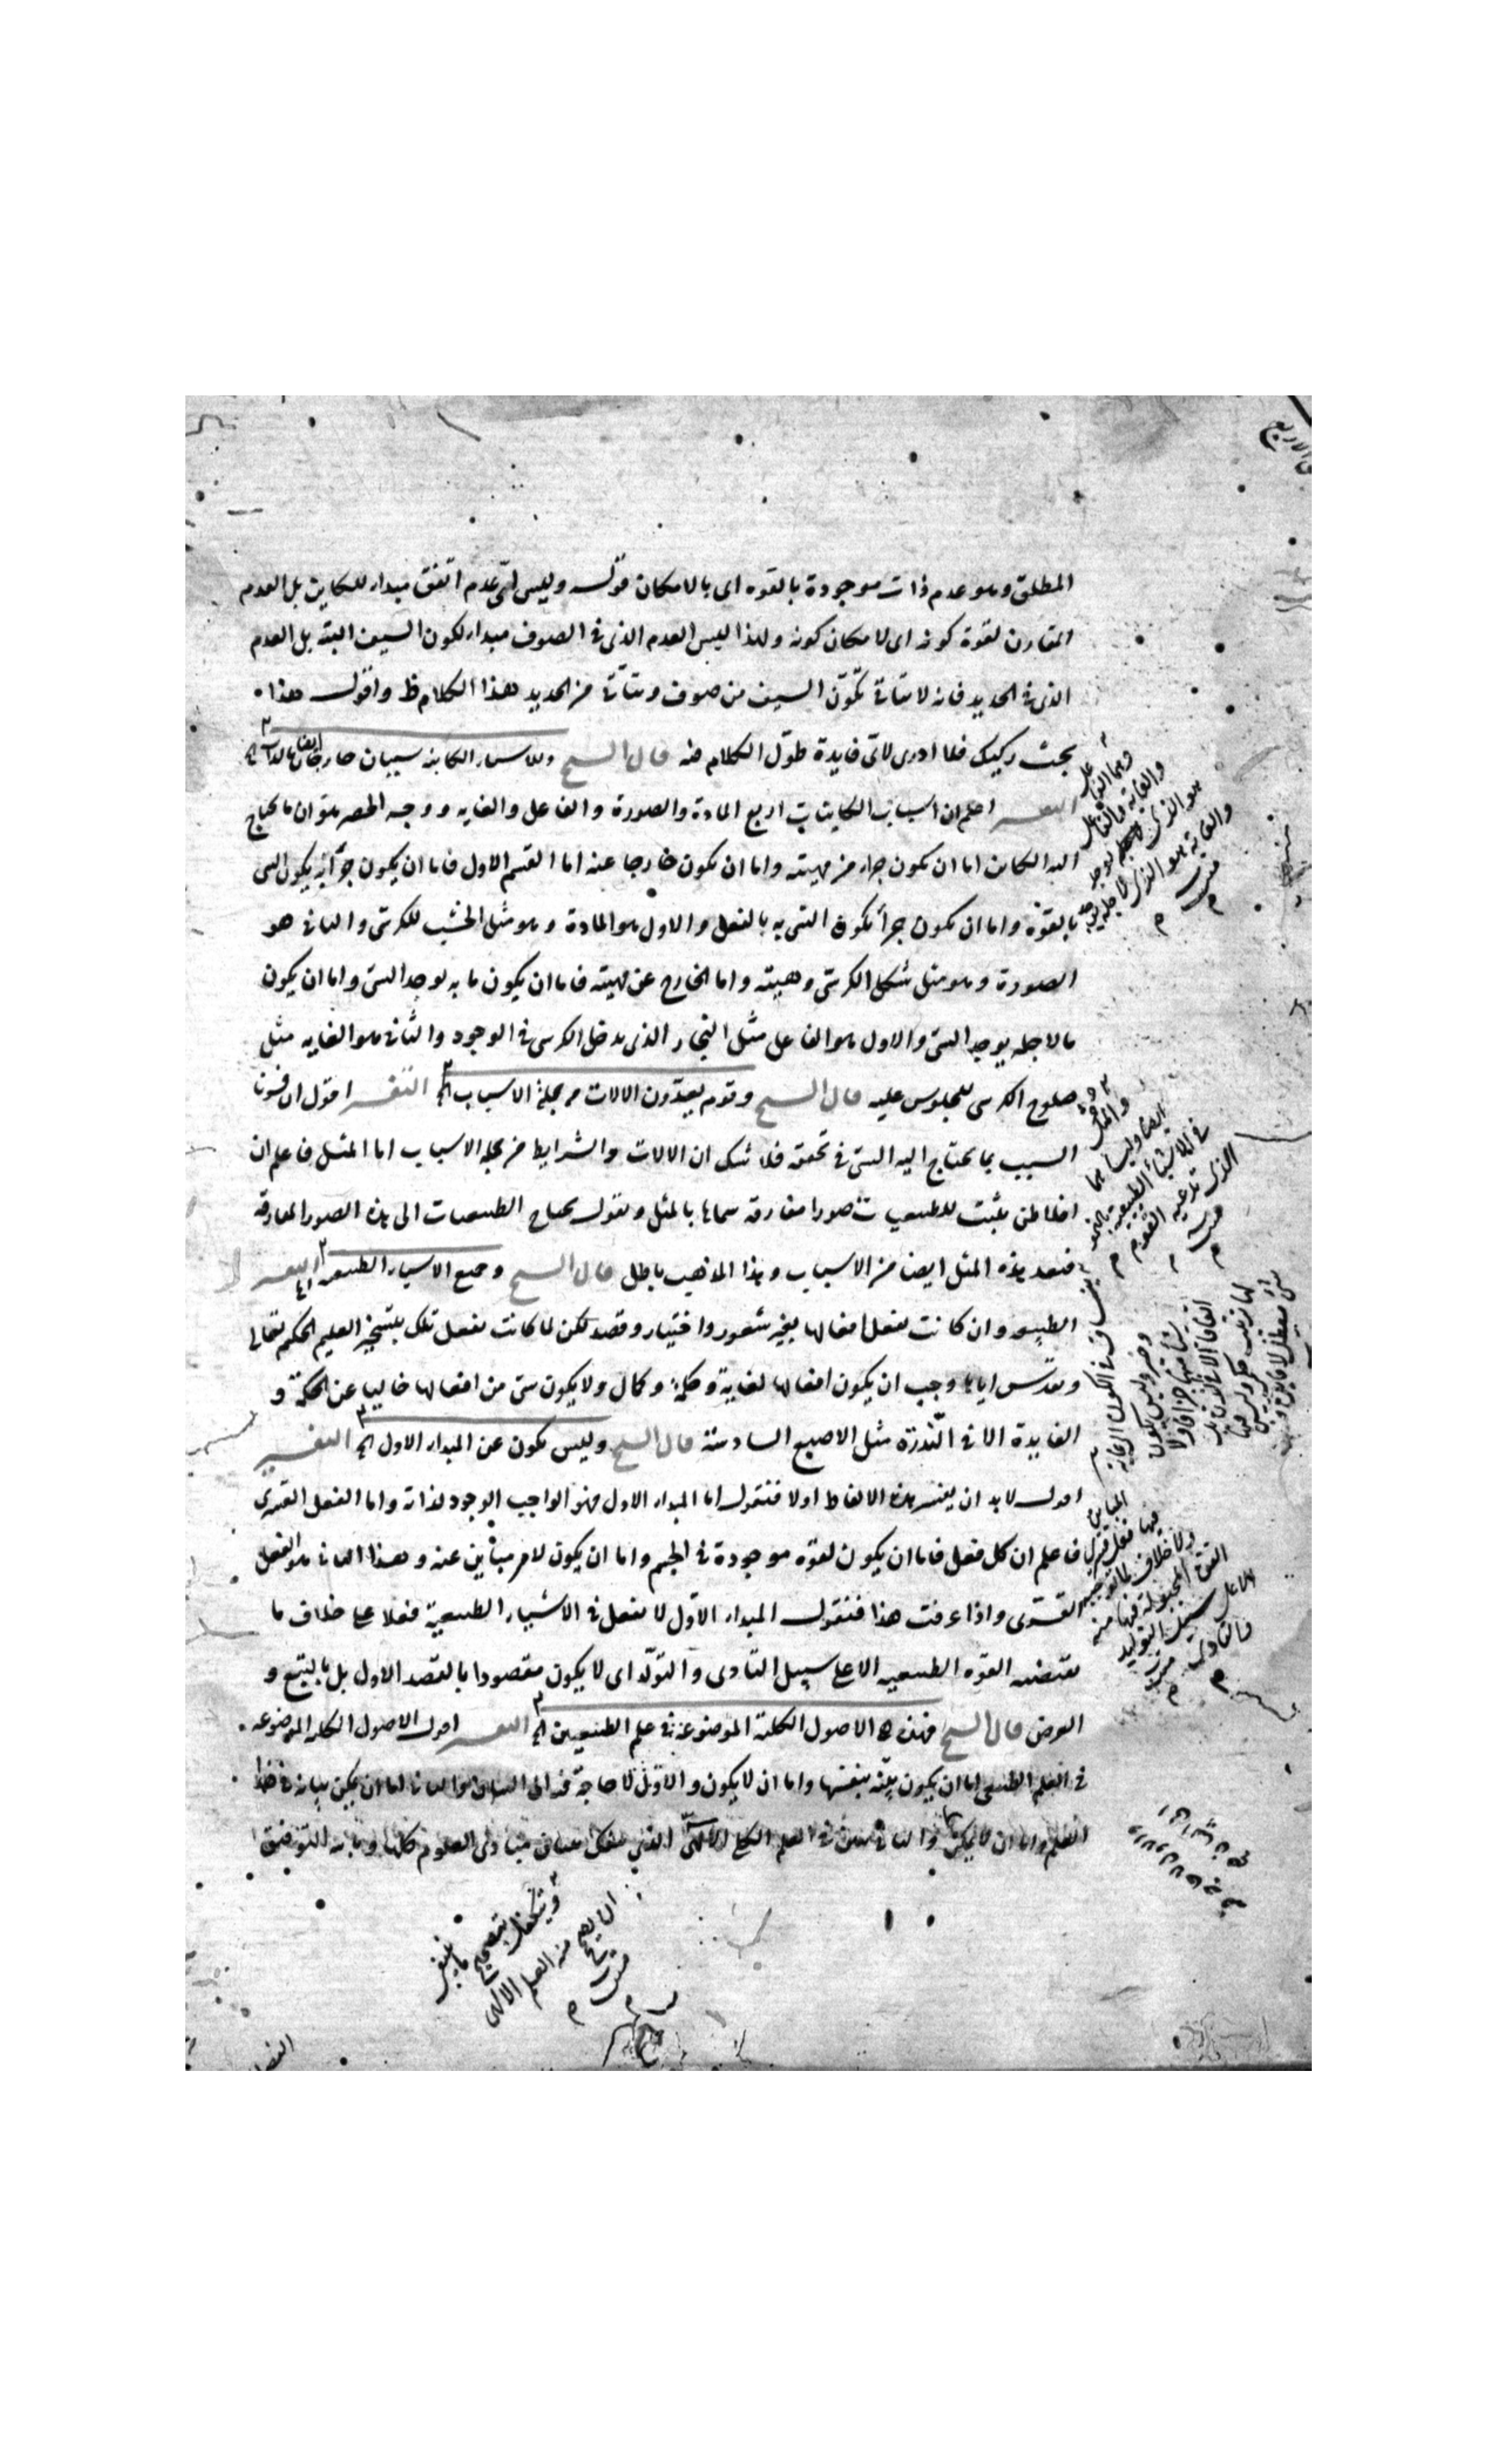 المطلق وهو عدم ذات موجودة بالقوه اى بالامكان قوله وليس اىّ عدم اتفق مبداء للكاين بل العدم
المقارن لقوة كونه اى لامكان كونه ولهذا ليس العدم الذى فى الصوف مبداء لكون السيف البتة بل العدم
الذى فى الحديد فانه لا يتاتى تكوّن السيف من صوف ويتاتى من الحديد هذا الكلام ظ واقول هذا
بحث ركيك فلا ادرى لاى فايدة طوّل الكلام فيه قال الشيخ وللاشياء الكاينة سببان خارجان ايضا بالذات الخ
التفسير اعلم ان اسباب الكاينات اربع المادة والصورة والفاعل والغايه ووجه الحصر هو ان ما يحتاج
اليه الكاين اما ان يكون جزء من مهيته واما ان يكون خارجا عنه اما القسم الاول فاما ان يكون جزأ به يكون الشى
بالقوه واما ان يكون جزأ يكون الشى به بالفعل والاول هو المادة وهو مثل الخشب للكرسى والثانى هو
الصورة وهو مثل شكل الكرسى وهيئته واما الخارج عن مهيته فاما ان يكون ما به يوجد الشى واما ان يكون
ما لاجله يوجد الشى والاول هو الفاعل مثل النجار الذى يدخل الكرسى فى الوجود والثانى هو الغايه مثل
صلوح الكرسى للجلوس عليه قال الشيخ وقوم يعدّون الالات من جملة الاسباب الخ التفسير اقول ان فسرنا
السبب بما يحتاج اليه الشى فى تحققه فلا شك ان الالات والشرايط من جملة الاسباب اما المثل فاعلم ان
افلاطن يثبت للطبيعيات صورا مفارقه سماها بالمثل ويقول يحتاج الطبيعيات الى هذه الصور المفارقة
فتعد هذه المثل ايضا من الاسباب وهذا المذهب باطل قال الشيخ وجميع الاشياء الطبيعيه الخ التفسير
الطبيعه وان كانت تفعل افعالها بغير شعور واختيار وقصد لكن لما كانت تفعل تلك بتسخير العليم الحكيم تعالى
وتقدس اياها وجب ان يكون افعالها لغاية وحكمة وكمال ولا يكون شى من افعالها خاليا عن الحكمة و
الفايدة الا فى النّدرة مثل الاصبع السادسة قال الشيخ وليس يكون عن المبداء الاول الخ التفسير
اقول لا بد ان يفسر هذه الالفاظ اولا فنقول اما المبداء الاول فهو الواجب الوجود لذاته واما الفعل القسرى
فاعلم ان كل فعل فاما ان يكون لقوه موجودة فى الجسم واما ان يكون لامر مباين عنه وهذا الثانى هو الفعل
القسرى واذا عرفت هذا فنقول المبداء الاوّل لا يفعل فى الاشياء الطبيعية فعلا على خلاف ما
تقتضيه القوه الطبيعيه الا على سبيل التادى والتولّد اى لا يكون مقصودا بالقصد الاول بل بالتبع و
العرض قال الشيخ فهذه هى الاصول الكلية الموضوعة فى علم الطبيعيين الخ التفسير اقول الاصول الكليه الموضوعه
فى العلم الطبيعى اما ان يكون بيّنة بنفسها واما ان لا يكون والاوّل لا حاجة فيه الى البيان والثانى اما ان يمكن بيانه فى هذا
العلم واما ان لا يمكن والثانى يبين فى العلم الكلى الالهى الذى يتكفل ببيان مبادى العلوم كلها وبالله التوفيق
وهما الفاعل
والغاية والفاعل
هو الذى يوجد
والغاية هو الذى لاجله يوجد
والمثل
ايضا وليسا بنا
فى الاشياء الطبيعية
الذى تدعيه القوم
ويتكفل بتصحيح
من العلم الالهى